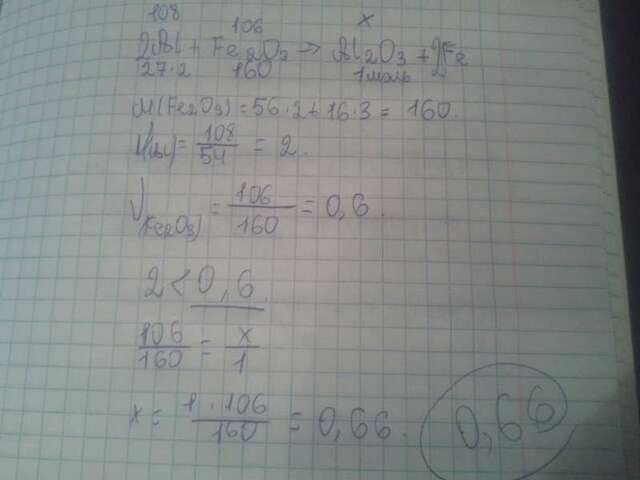 108 106 x
2Al + Fe2O3 → Al2O3 + 2Fe
27·2 160 1 моль
M(Fe2O3) = 56·2 + 16·3 = 160.
ν(Al) = 108/54 = 2.
ν(Fe2O3) = 106/160 = 0,6.
2 < 0,6
106/160 = x/1
x = 1·106/160 = 0,66. 0,66